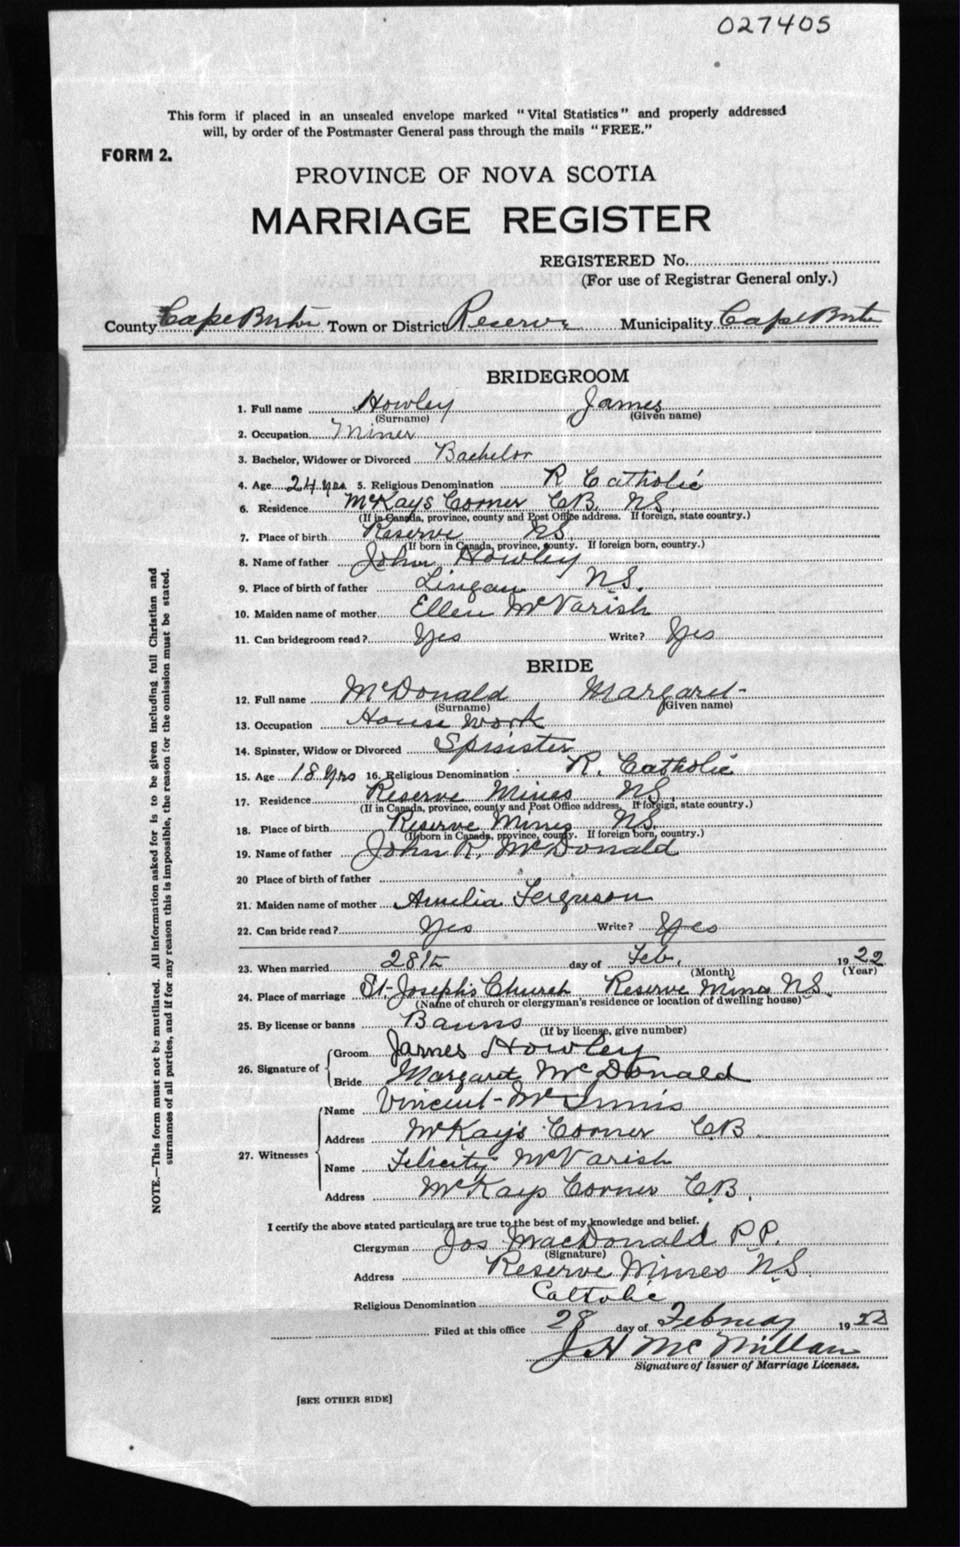 027405
This form if placed in an unsealed envelope marked "Vital Statistics" and properly addressed
will, by order of the Postmaster General pass through the mails "FREE."
FORM 2.
PROVINCE OF NOVA SCOTIA
MARRIAGE REGISTER
REGISTERED No.
(For use of Registrar General only.)
County Cape Breton Town or District Reserve Municipality Cape Breton
BRIDEGROOM
1. Full name Howley James
(Surname) (Given name)
2. Occupation Miner
3. Bachelor, Widower or Divorced Bachelor
4. Age 24 yrs 5. Religious Denomination R Catholic
6. Residence McKays Corner C.B. N.S.
(If in Canada, province, county and Post Office address. If foreign, state country.)
7. Place of birth Reserve N.S.
(If born in Canada, province, county. If foreign born, country.)
8. Name of father John Howley
9. Place of birth of father Lingan N.S.
10. Maiden name of mother Ellen McVarish
11. Can bridegroom read? Yes Write? Yes
BRIDE
12. Full name McDonald Margaret
(Surname) (Given name)
13. Occupation House work
14. Spinster, Widow or Divorced Spinister
15. Age 18 yrs 16. Religious Denomination R. Catholic
17. Residence Reserve Mines N.S.
(If in Canada, province, county and Post Office address. If foreign, state country.)
18. Place of birth Reserve Mines N.S.
(If born in Canada, province, county. If foreign born, country.)
19. Name of father John R. McDonald
20 Place of birth of father
21. Maiden name of mother Amelia Ferguson
22. Can bride read? Yes Write? Yes
23. When married 28th day of Feb. 1922
(Month) (Year)
24. Place of marriage St-Joseph's Church Reserve Mines N.S.
(Name of church or clergyman's residence or location of dwelling house)
25. By license or banns Banns
(If by license, give number)
26. Signature of
Groom James Howley
Bride Margaret McDonald
27. Witnesses
Name Vincent McInnis
Address McKay's Corner C.B.
Name Felicity McVarish
Address McKays Corner C.B.
I certify the above stated particulars are true to the best of my knowledge and belief.
Clergyman Jos MacDonald P.P.
(Signature)
Address Reserve Mines N.S.
Religious Denomination Catholic
Filed at this office 28 day of February 1922
J H McMillan
Signature of Issuer of Marriage Licenses.
[SEE OTHER SIDE]
NOTE.—This form must not be mutilated. All information asked for is to be given including full Christian and
surnames of all parties, and if for any reason this is impossible, the reason for the omission must be stated.